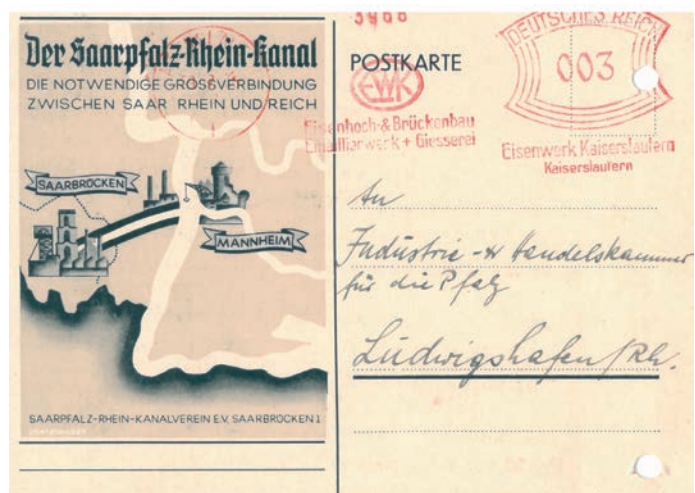 Der Saarpfalz-Rhein-Kanal
DIE NOTWENDIGE GROSSVERBINDUNG
ZWISCHEN SAAR RHEIN UND REICH
SAARBRÜCKEN
MANNHEIM
SAARPFALZ-RHEIN-KANALVEREIN E.V. SAARBRÜCKEN 1
POSTKARTE
EWK
Eisenhoch-& Brückenbau
Emaillierwerk + Giesserei
DEUTSCHES REICH
003
Eisenwerk Kaiserslautern
Kaiserslautern
An
Industrie- u Handelskammer
für die Pfalz
Ludwigshafen/Rh.